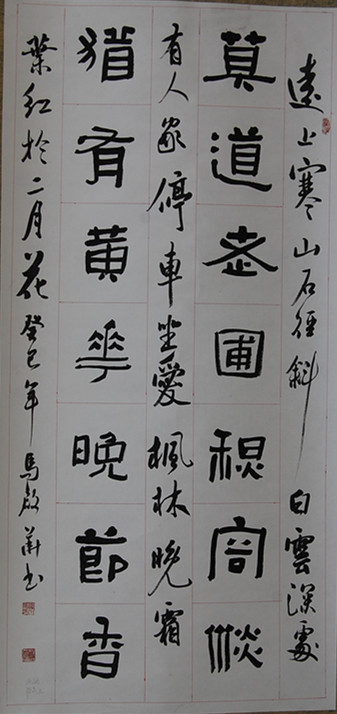 遠上寒山石徑斜白雲深處
莫道老圃秋容淡
有人家停車坐愛楓林晚霜
猶有黃華晚節香
葉紅於二月花 癸巳年馬啟書